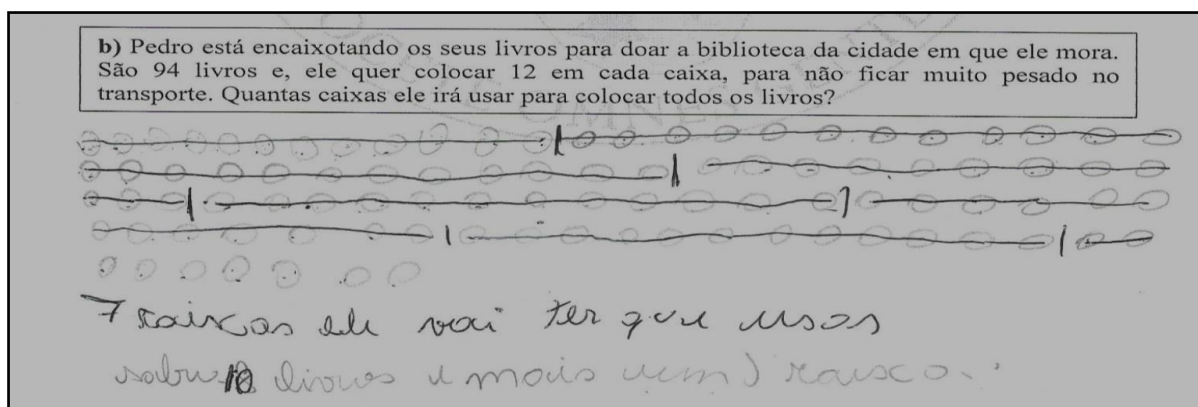 b) Pedro está encaixotando os seus livros para doar a biblioteca da cidade em que ele mora.
São 94 livros e, ele quer colocar 12 em cada caixa, para não ficar muito pesado no
transporte. Quantas caixas ele irá usar para colocar todos os livros?
7 caixas ele vai ter que
10 livros e mais